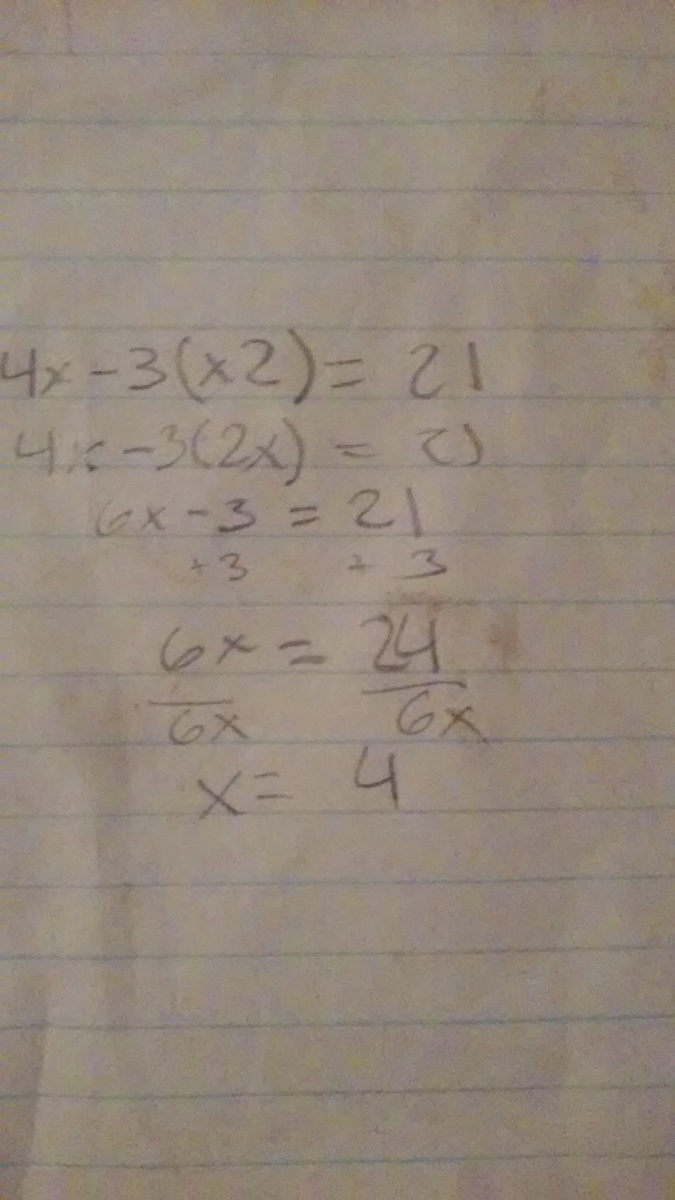 4x - 3(x2) = 21
4x - 3(2x) = 21
6x - 3 = 21
+3 + 3
6x = 24
6x 6x
x = 4